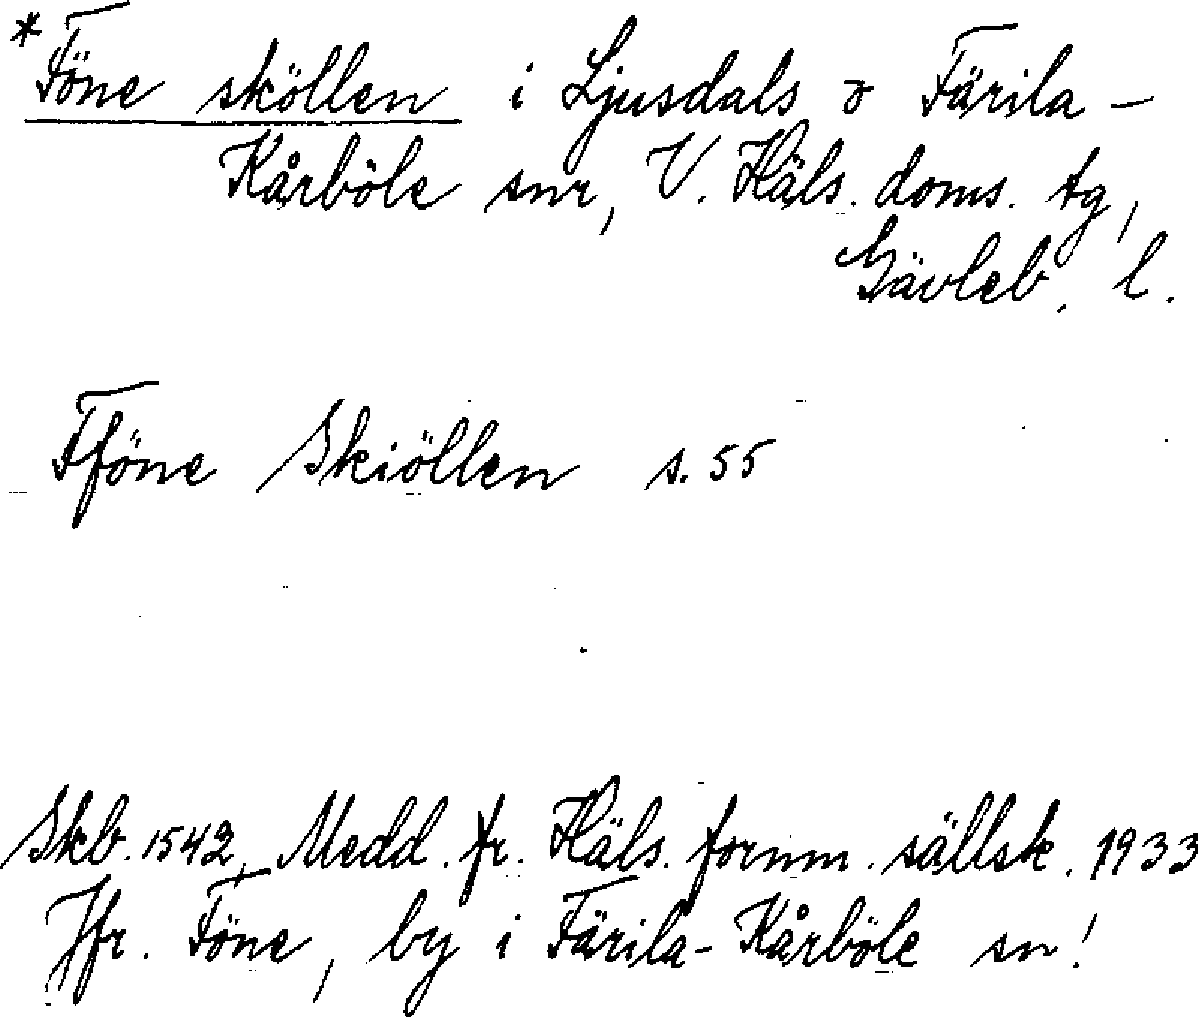 *Föne sköllen i Ljusdals o Färila-
Kårböle snr, V. Häls. doms. tg,
Gävleb. l.
Fföne Skiöllen s. 55
Skb. 1542, Medd. fr. Häls. fornm. sällsk. 1933
Jfr. Föne, by i Färila-Kårböle sn!